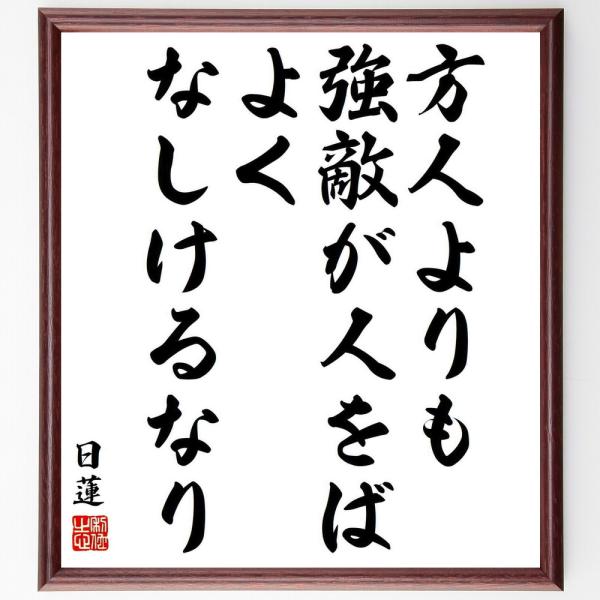 方人よりも
強敵が人をば
よく
なしけるなり
日蓮